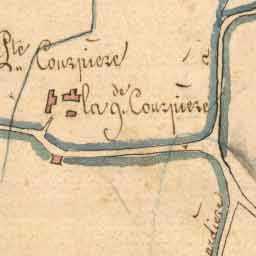 Pte Courpiere
la gde Courpiere